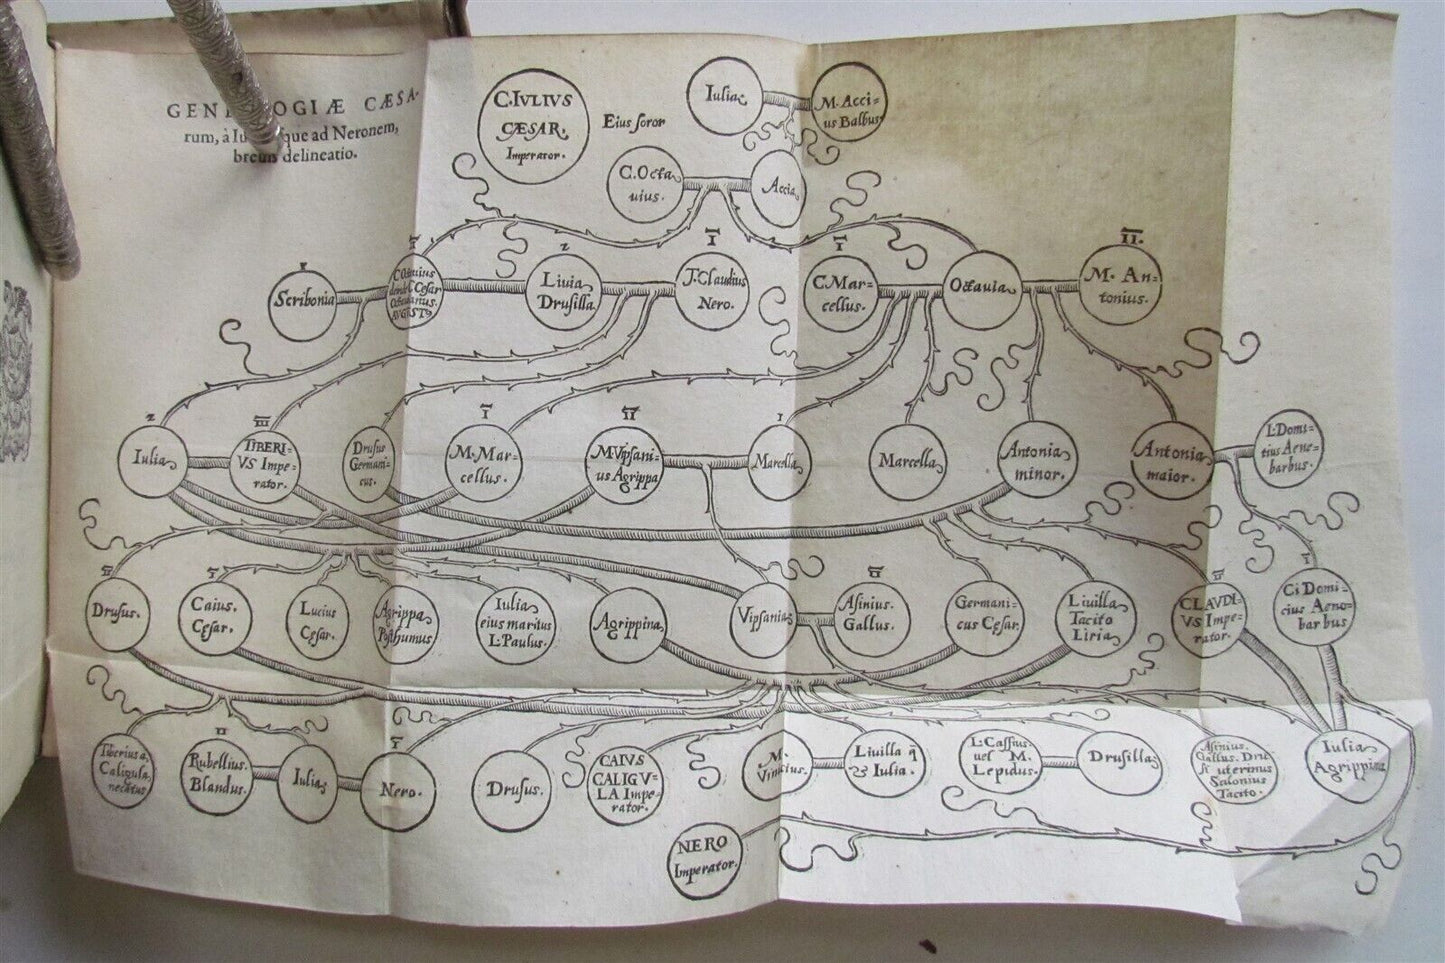 GENEALOGIÆ CÆSA-
rum, à Iu que ad Neronem,
breuis delineatio.
C. IVLIVS
CÆSAR.
Imperator.
Eius soror
Iulia
M. Acci=
us Balbus
C. Octa
uius.
Accia
I
Scribonia
I
C Octauius
deinde C Cęsar
Octauianus.
AVGVST9
2
Liuia
Drusilla
I
T. Claudius
Nero.
I
C. Mar=
cellus.
Octauia
II.
M. An=
tonius.
2
Iulia
III
TIBERI-
VS Impe-
rator.
Drusus
Germani=
cus.
I
M. Mar=
cellus.
II
M. Vipsani=
us Agrippa
I
Marcella
Marcella
Antonia
minor.
Antonia
maior.
L. Domi=
tius Aeno=
barbus.
II
Drusus.
I
Caius.
Cęsar.
Lucius
Cęsar.
Agrippa
Posthumus
Iulia
eius maritus
L. Paulus.
Agrippina
Vipsania
II
Asinius.
Gallus.
Germani=
cus Cęsar.
Liuilla
Tacito
Liria
II
CLAVDI-
VS Impe=
rator.
I
Ci. Domi=
cius Aeno=
barbus
Tiberius a
Caligula
necatus
II
Rubellius.
Blandus.
Iulia
I
Nero.
Drusus.
CAIVS
CALIGV=
LA Impe=
rator.
M.
Vinicius.
Liuilla q̄
& Iulia.
L. Cassius.
uel M.
Lepidus.
Drusilla
Asinius.
Gallus. Dru
si uterinus
Salonius
Tacito.
Iulia
Agrippina
NERO
Imperator.